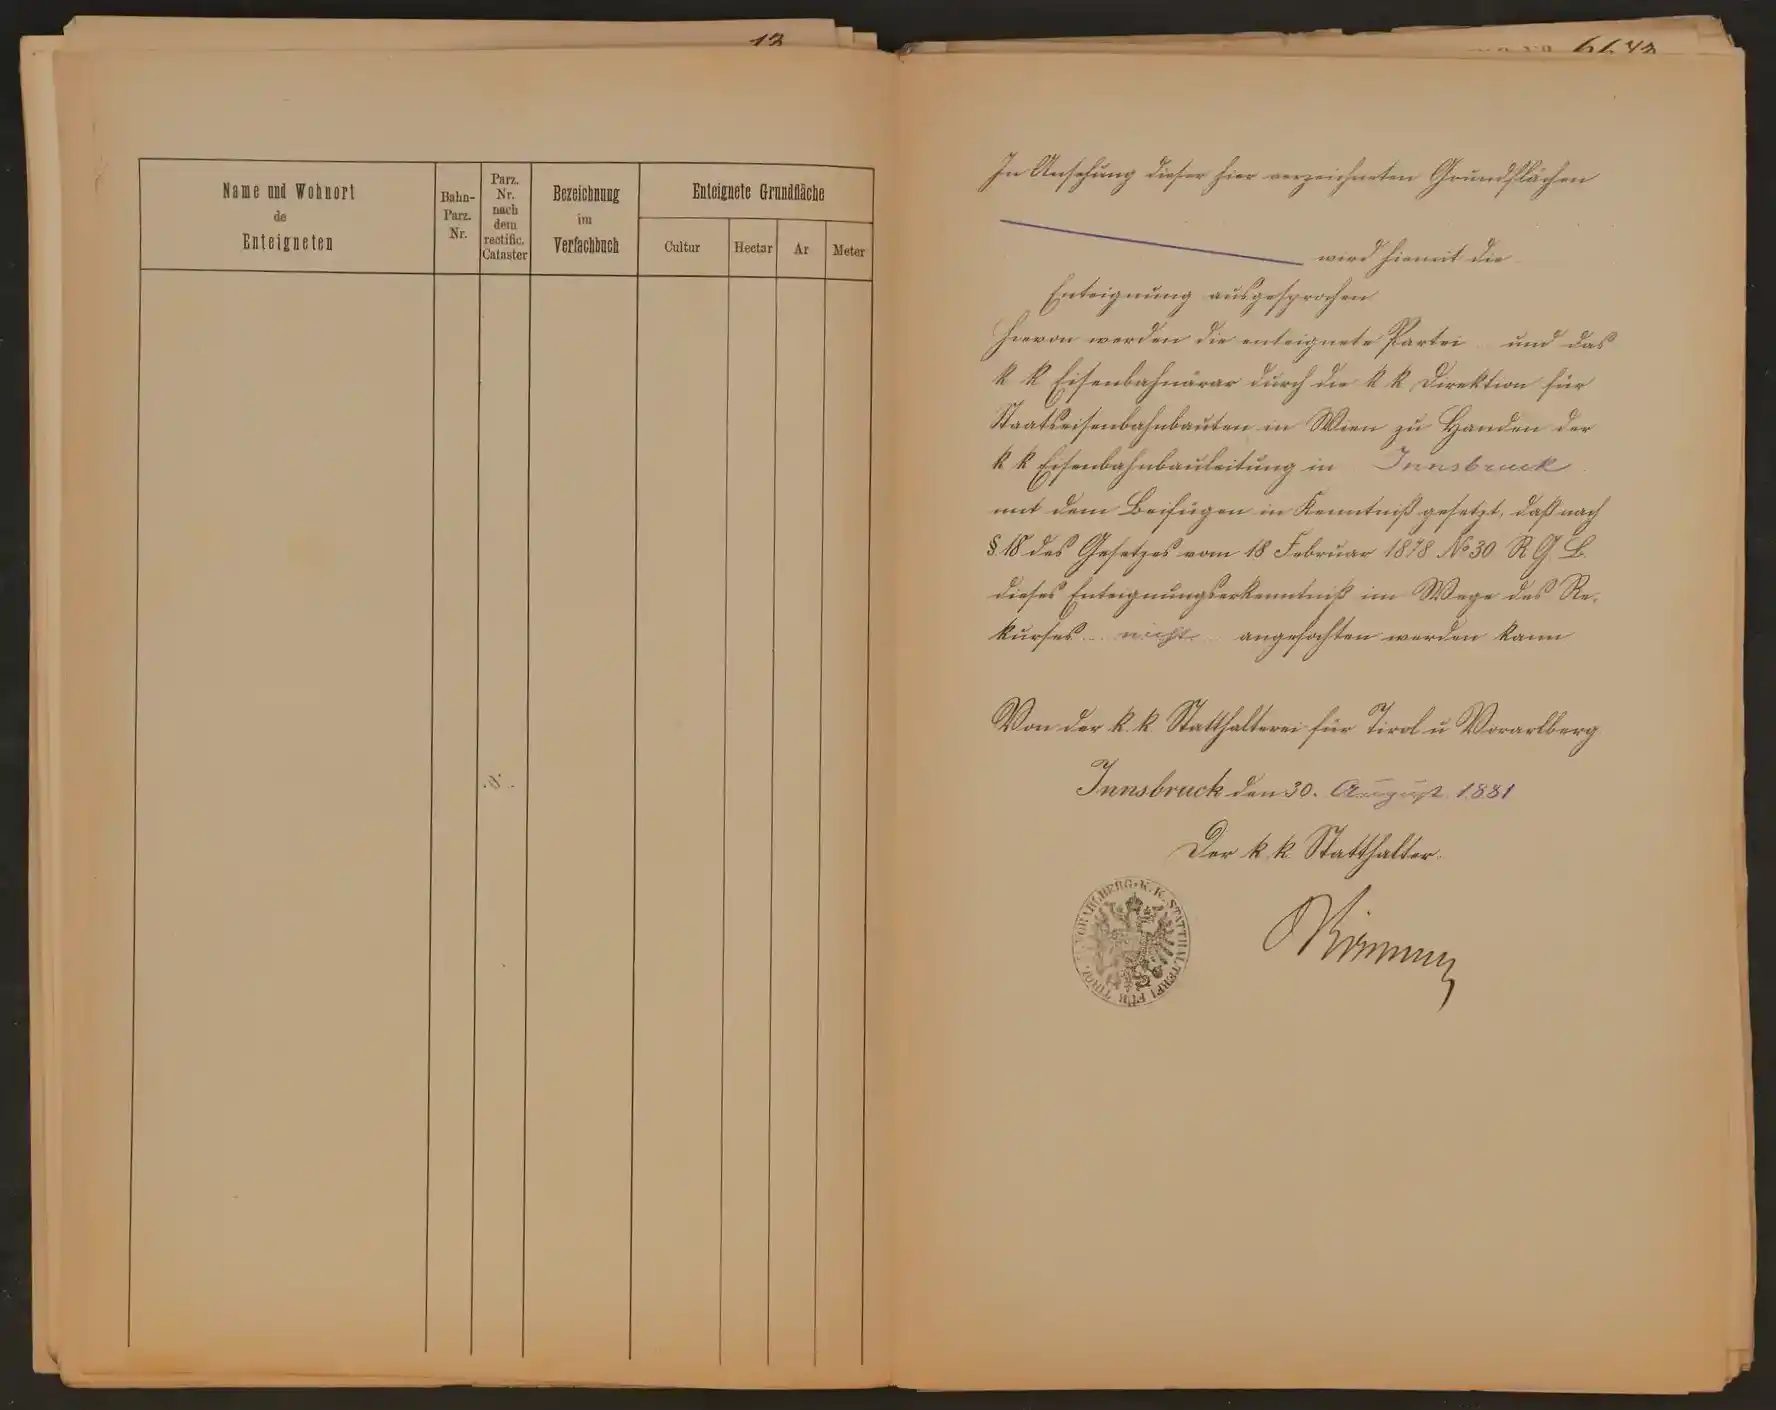 12
Name und Wohnort
de
Enteigneten
Bahn-
Parz.
Nr.
Parz.
Nr.
nach
dem
rectific.
Cataster
Bezeichnung
im
Verfachbuch
Enteignete Grundfläche
Cultur
Hectar
Ar
Meter
In Ansehung dieser hier verzeichneten Grundflächen
wird hiemit die
Enteignung ausgesprochen
Hievon werden die enteignete Partei und das
k k Eisenbahnärar durch die k k Direktion für
Staatseisenbahnbauten in Wien zu Handen der
k k Eisenbahnbauleitung in Innsbruck
mit dem Beifügen in Kenntniß gesetzt, daß nach
§. 18 des Gesetzes vom 18 Februar 1878 No 30 R. G. B.
dieses Enteignungserkenntniß im Wege des Re-
kurses nicht angefochten werden kann
Von der k. k. Statthalterei für Tirol u Vorarlberg
Innsbruck den 30. August 1881
Der k. k. Statthalter.
K. K. STATTHALTEREI FÜR TIROL U. VORARLBERG